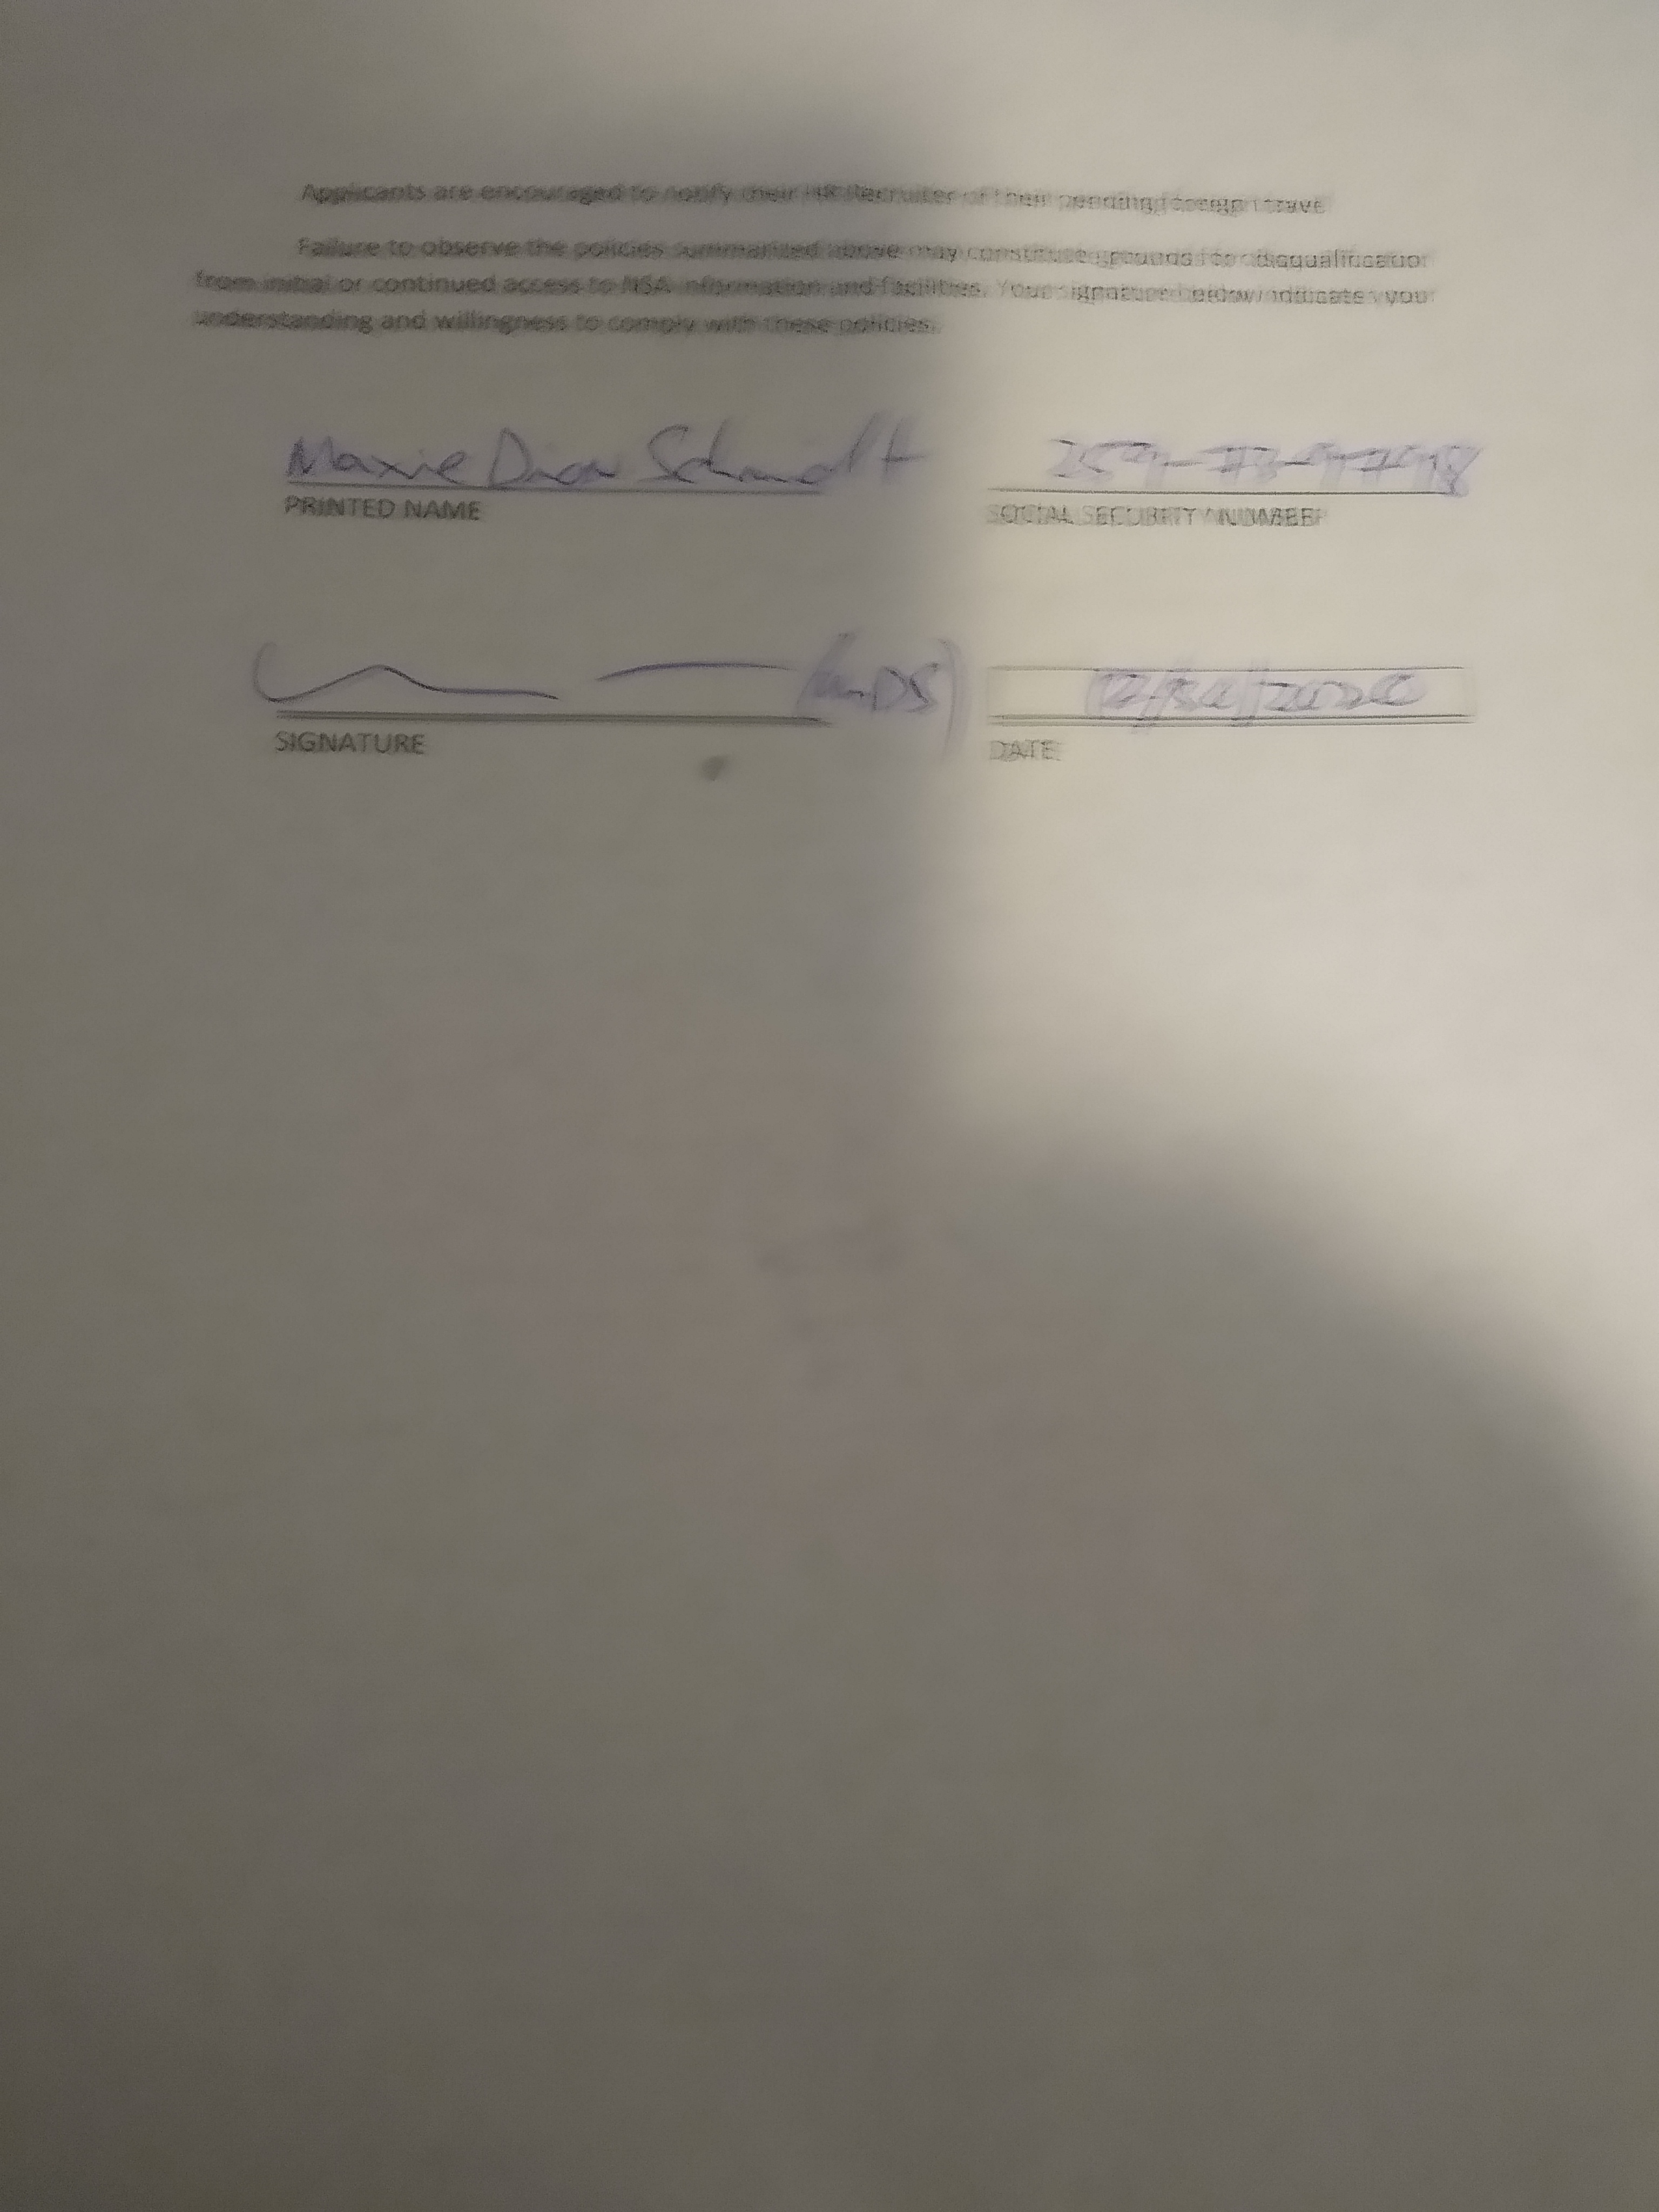 Applicants are encouraged to notify their HR Recruiter of their pending foreign travel
Failure to observe the policies summarized above may constitute grounds for disqualification
from initial or continued access to NSA information and facilities. Your signature below indicates you
understanding and willingness to comply with these policies.
Maxie Schmidt
PRINTED NAME
SOCIAL SECURITY NUMBER
(MDS)
SIGNATURE
DATE